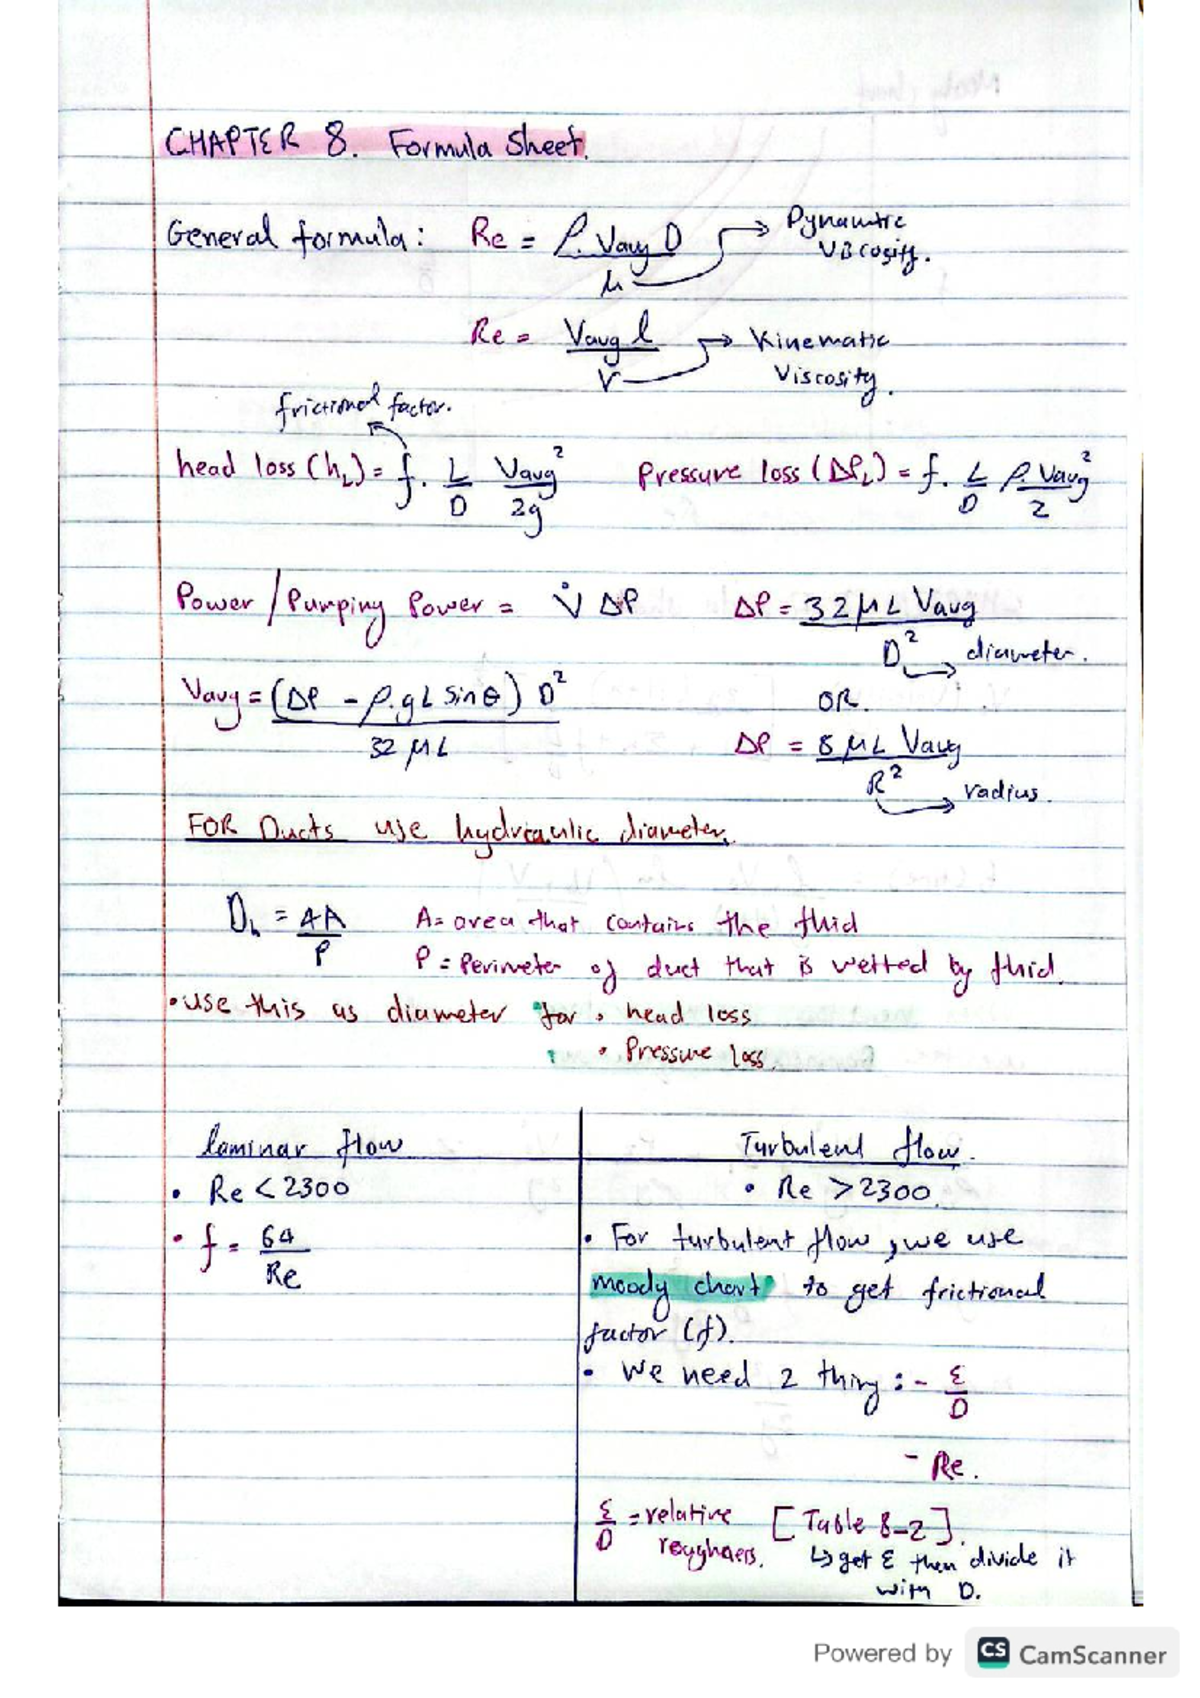 CHAPTER 8. Formula Sheet.
General formula: Re = ρ. Vavg D / μ → Dynamic Viscosity.
Re = Vavg l / ν → Kinematic Viscosity.
frictional factor.
head loss (hL) = f. L/D Vavg²/2g
Pressure loss (ΔPL) = f. L/D ρ. Vavg²/2
Power / Pumping Power = V̇ ΔP
ΔP = 32 μ L Vavg / D² → diameter.
Vavg = (ΔP - ρ.gL Sin θ) D² / 32 μ L
OR.
ΔP = 8 μ L Vavg / R² → radius.
FOR Ducts use hydraulic diameter.
Dh = 4A / P
A = area that contains the fluid
P = Perimeter of duct that is wetted by fluid.
• use this as diameter for • head loss
• Pressure loss.
laminar flow
• Re < 2300
• f = 64 / Re
Turbulent flow.
• Re > 2300.
• For turbulent flow, we use
moody chart to get frictional
factor (f).
• We need 2 thing : - ε/D
- Re.
ε/D = relative roughness. [Table 8-2].
↳ get ε then divide it
with D.
Powered by CS CamScanner